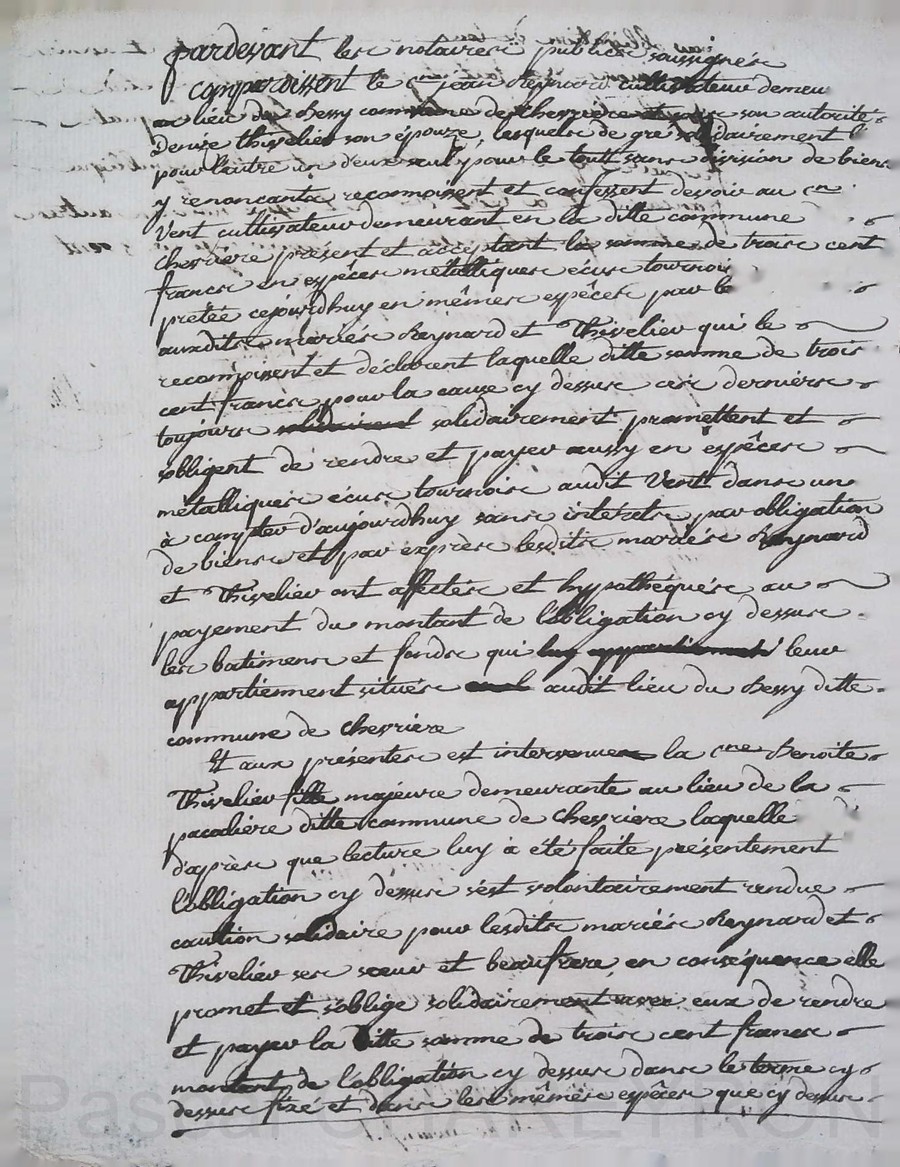 pardevant les notaires publics soussignés
comparoissent le Cen jean Reynard cultivateur demeu
au lieu du Bessy commune de Chevriere et sous son autorité
Denise Thivelier son épouze, lesquels de gré solidairement l'
pour l'autre un d'eux seul pour le tout sans division de biens
y renonçants reconnoissent et confessent devoir au Cen
Vent cultivateur demeurant en la ditte commune
Chevriere présent et acceptant la somme de trois cent
francs en espêces métalliques écus tournois
pretée cejourdhuy en mêmes espêces par le
auxdits mariés Reynard et Thivelier qui le
reconnoissent et déclarent laquelle ditte somme de trois
cent francs pour la cause cy dessus ces derniers
toujours solidairement promettent et
obligent de rendre et payer aussy en espêces
métalliques écus tournois audit Vent dans un
à compter d'aujourdhuy sans intérets par obligation
de biens et par exprès lesdits mariés Reynard
et Thivelier ont affectés et hypothéqués au
payement du montant de l'obligation cy dessus
les batimens et fonds qui leur
appartiennent situés audit lieu du Bessy ditte
commune de Chevriere
Et aux présentes est intervenue la Cne Benoite
Thivelier fille majeure demeurante au lieu de la
pacaliere ditte commune de Chevriere laquelle
d'après que lecture luy à été faite présentement
l'obligation cy dessus s'est volontairement rendue
caution solidaire pour lesdits mariés Reynard et
Thivelier ses sœur et beaufrere, en conséquence elle
promet et s'oblige solidairement avec eux de rendre
et payer la ditte somme de trois cent francs
montant de l'obligation cy dessus dans le terme cy
dessus fixé et dans les mêmes espêces que cy dessus